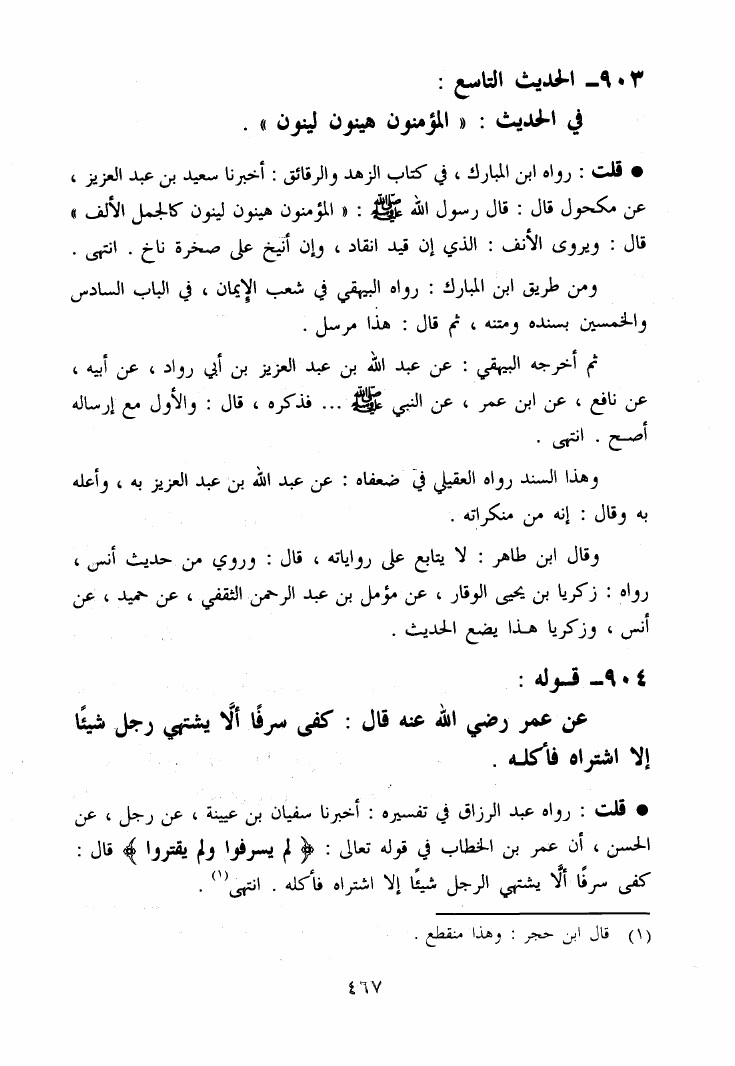 ٩٠٣ـ الحديث التاسع :
في الحديث : « المؤمنون هينون لينون » .
● قلت : رواه ابن المبارك ، في كتاب الزهد والرقائق : أخبرنا سعيد بن عبد العزيز ،
عن مكحول قال : قال رسول الله ﷺ : « المؤمنون هينون لينون كالجمل الألف »
قال : ويروى الأنف : الذي إن قيد انقاد ، وإن أنيخ على صخرة ناخ . انتهى .
ومن طريق ابن المبارك : رواه البيهقي في شعب الإيمان ، في الباب السادس
والخمسين بسنده ومتنه ، ثم قال : هذا مرسل .
ثم أخرجه البيهقي : عن عبد الله بن عبد العزيز بن أبي رواد ، عن أبيه ،
عن نافع ، عن ابن عمر ، عن النبي ﷺ ... فذكره ، قال : والأول مع إرساله
أصح . انتهى .
وهذا السند رواه العقيلي في ضعفاه : عن عبد الله بن عبد العزيز به ، وأعله
به وقال : إنه من منكراته .
وقال ابن طاهر : لا يتابع على رواياته ، قال : وروي من حديث أنس ،
رواه : زكريا بن يحيى الوقار ، عن مؤمل بن عبد الرحمن الثقفي ، عن حميد ، عن
أنس ، وزكريا هذا يضع الحديث .
٩٠٤ـ قوله :
عن عمر رضي الله عنه قال : كفى سرفًا ألَّا يشتهي رجل شيئًا
إلا اشتراه فأكله .
● قلت : رواه عبد الرزاق في تفسيره : أخبرنا سفيان بن عيينة ، عن رجل ، عن
الحسن ، أن عمر بن الخطاب في قوله تعالى : ﴿ لم يسرفوا ولم يقتروا ﴾ قال :
كفى سرفًا ألَّا يشتهي الرجل شيئًا إلا اشتراه فأكله . انتهى(١) .
(١) قال ابن حجر : وهذا منقطع .
٤٦٧